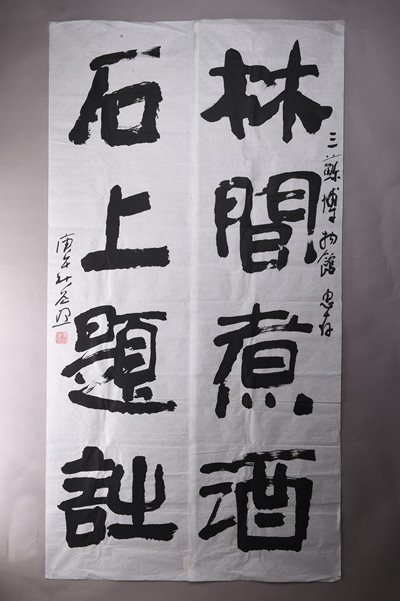 三蘇博物館 惠存
林間煮酒
石上題詩
庚午秋